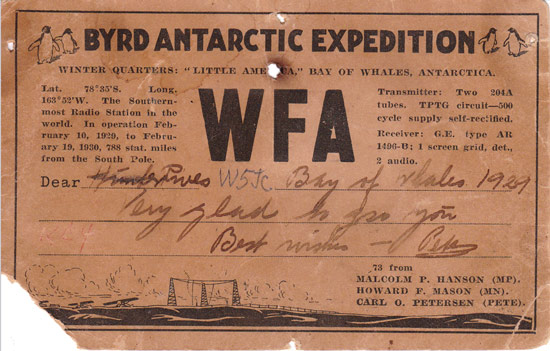 BYRD ANTARCTIC EXPEDITION
WINTER QUARTERS: "LITTLE AMERICA," BAY OF WHALES, ANTARCTICA.
Lat. 78°35'S. Long.
163°52'W. The Southern-
most Radio Station in the
world. In operation Febru-
ary 10, 1929, to Febru-
ary 19, 1930, 788 stat. miles
from the South Pole.
WFA
Transmitter: Two 204A
tubes. TPTG circuit—500
cycle supply self-rectified.
Receiver: G.E. type AR
1496-B; 1 screen grid, det.,
2 audio.
Dear W5JC Bay of Whales 1929
Very glad to you
Best wishes — Pete
73 from
MALCOLM P. HANSON (MP).
HOWARD F. MASON (MN).
CARL O. PETERSEN (PETE).